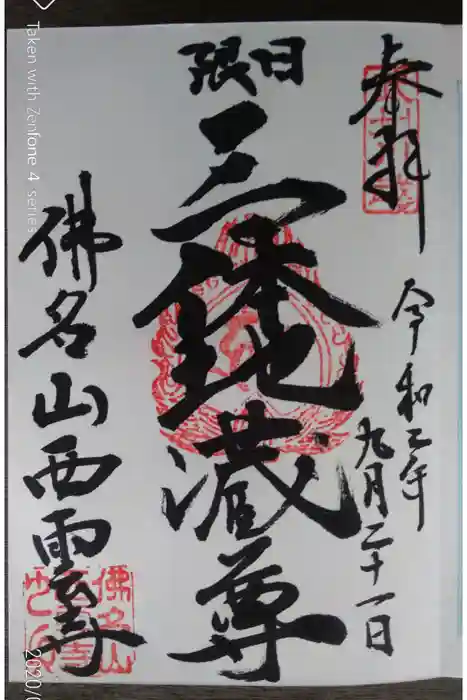 奉拝
令和二年
九月二十一日
日限
三鉢地蔵尊
佛名山西雲寺
Taken with Zenfone 4 series